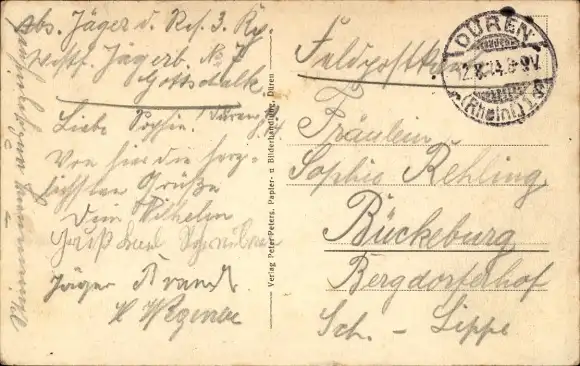 Abs. Jäger d. Res. 3. Kp.
Westf. Jägerb. N. 7
Gottschalk
Liebe Sophie! Düren,
Von hier die herz-
lichsten Grüße
Dein Wilhelm
Gruß Karl
Jäger Brandt
H Wegener
Verlag Peter Peters, Papier- u Bilderhandlung, Düren
Feldpostkarte
DÜREN
12.8.14.8-9V.
(Rheinl.)
Fräulein
Sophie Rehling
Bückeburg
Bergdorferhof
Sch. - Lippe